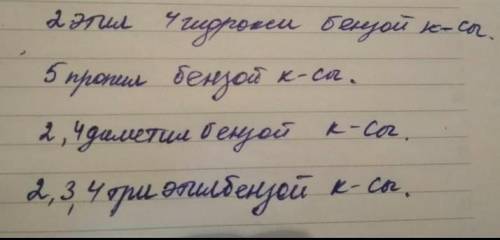 2 этил 4 гидрокси бензой к-сы.
5 пропил бензой к-сы.
2,4 диметил бензой к-сы.
2,3,4 три этилбензой к-сы.